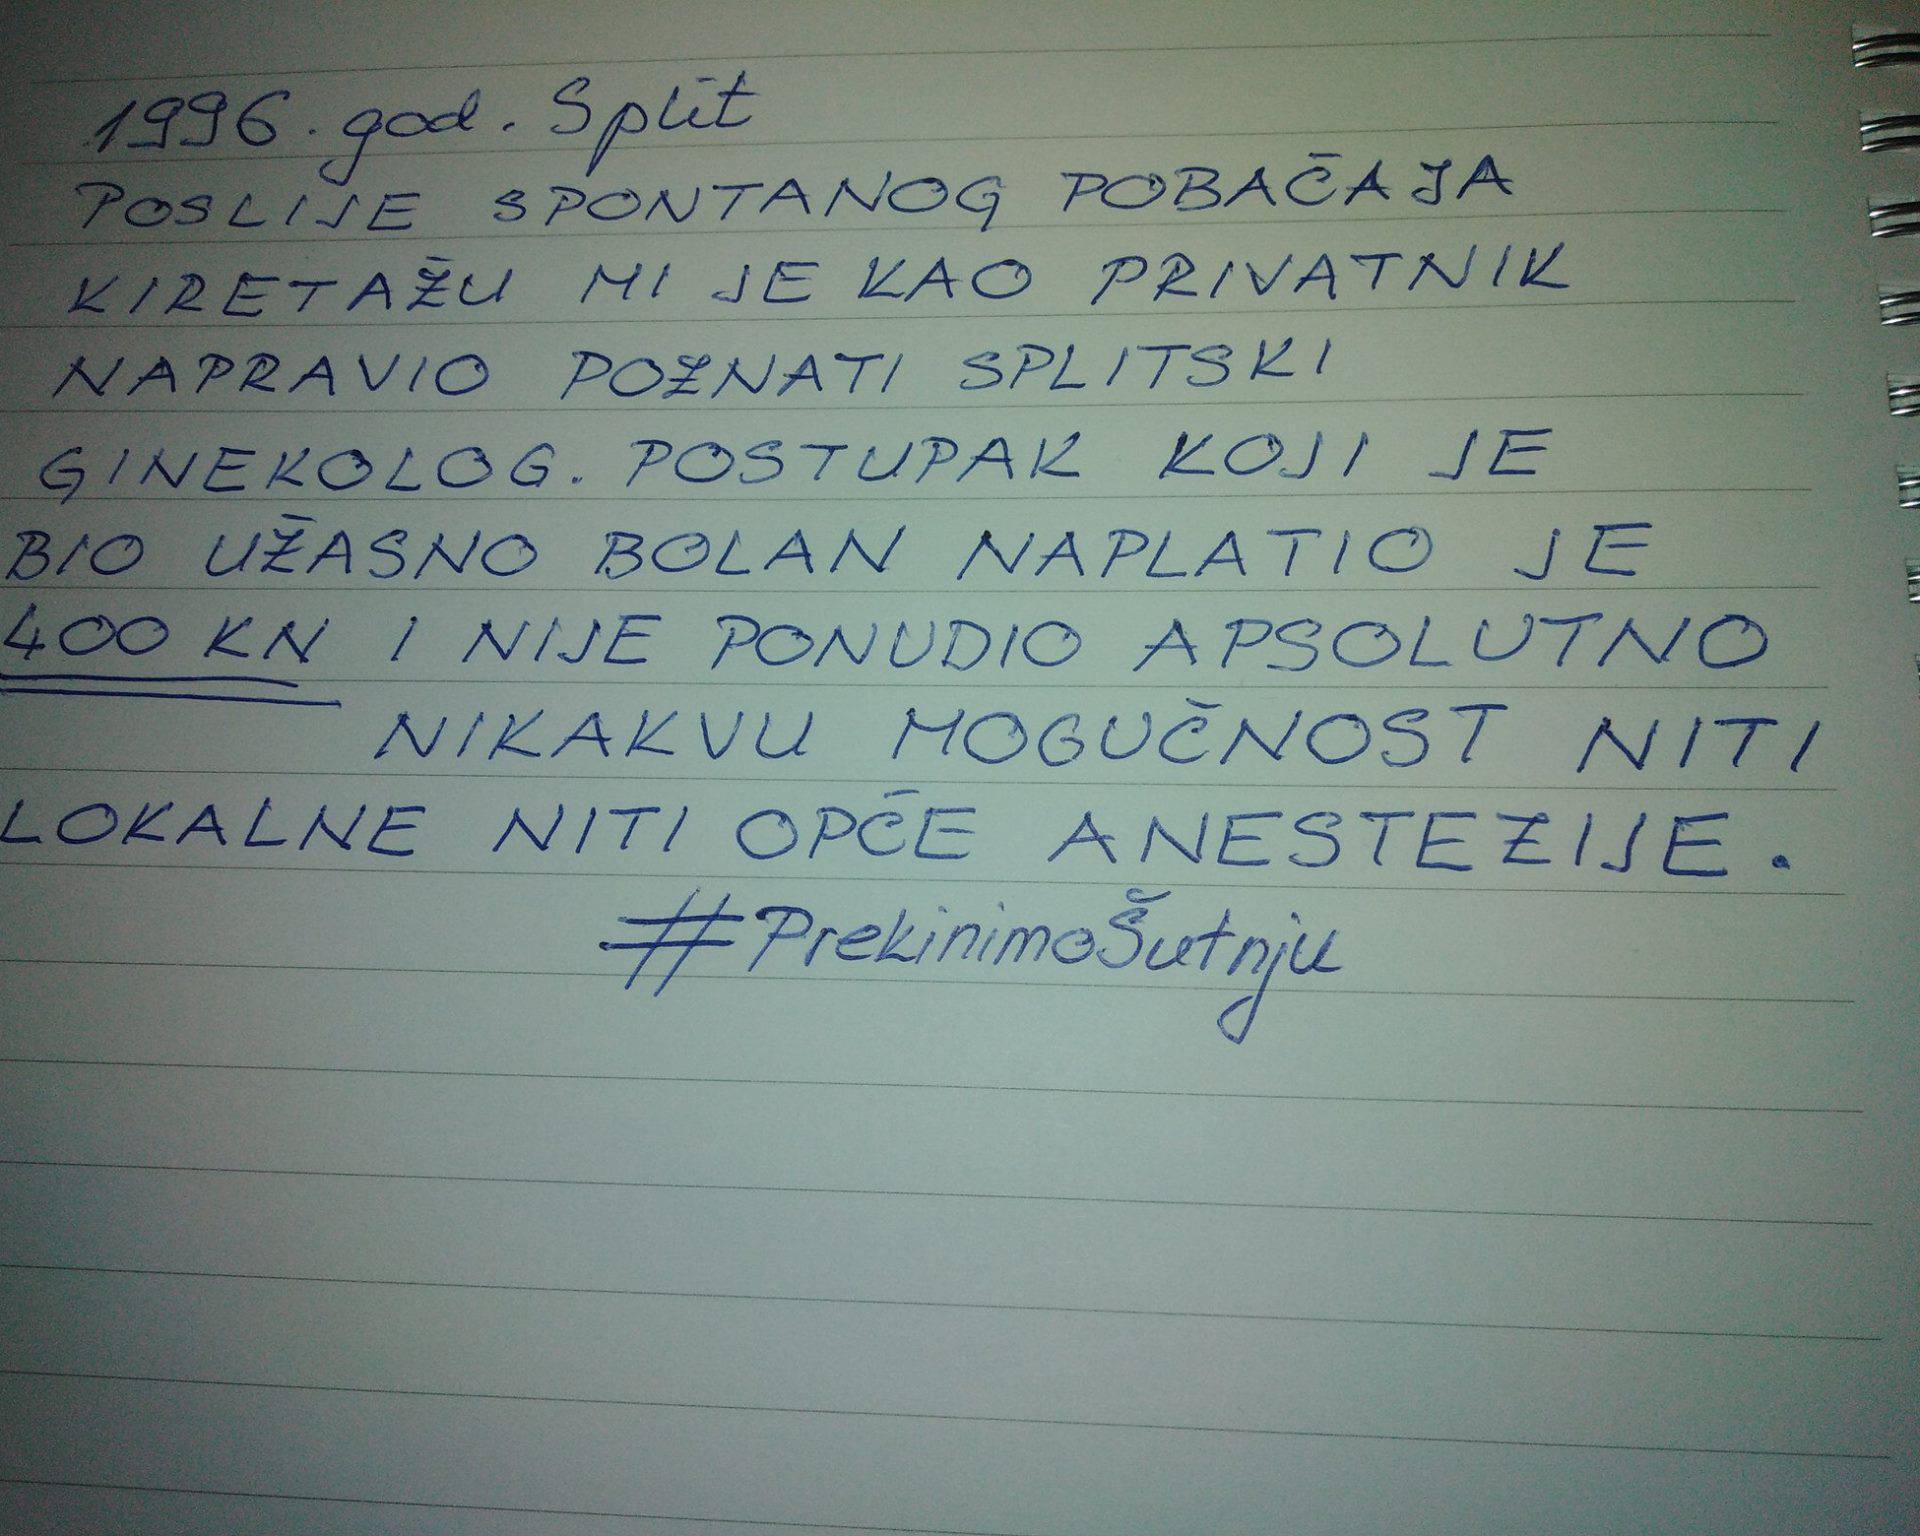 1996. god. Split
POSLIJE SPONTANOG POBAČAJA
KIRETAŽU MI JE KAO PRIVATNIK
NAPRAVIO POZNATI SPLITSKI
GINEKOLOG. POSTUPAK KOJI JE
BIO UŽASNO BOLAN NAPLATIO JE
400 KN I NIJE PONUDIO APSOLUTNO
NIKAKVU MOGUČNOST NITI
LOKALNE NITI OPČE ANESTEZIJE.
#PrekinimoŠutnju